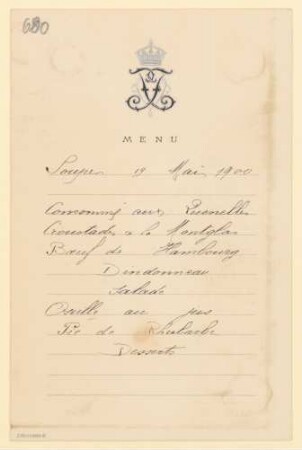 680
MENU
Souper 19 Mai 1900
Consommé aux Quenelles
Croustades à la Montglas
Bœuf de Hambourg
Dindonneau
Salade
Oseille au jus
Pie de Rhubarbe
Desserts